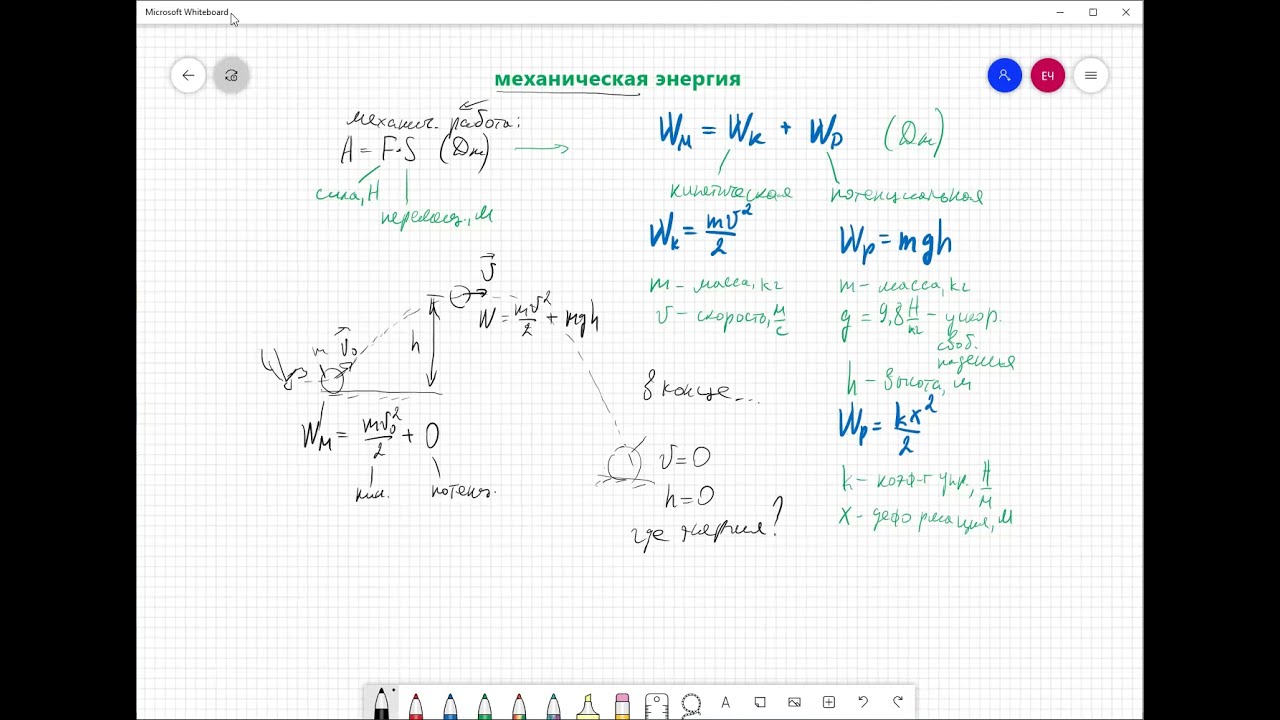 Microsoft Whiteboard
ЕЧ
механическая энергия
механич. работа:
A = F·S (Дж)
сила, Н
перемещ., м
Wм = Wк + Wр (Дж)
кинетическая
потенциальная
Wк = mv²/2
m – масса, кг
v – скорость, м/с
Wр = mgh
m – масса, кг
g = 9,8 Н/кг – ускор.
своб.
паденья
h – высота, м
Wр = kx²/2
k – коэф-т упр., Н/м
x – деформация, м
v
W = mv²/2 + mgh
h
m v₀
Wм = mv₀²/2 + 0
кин.
потенц.
в конце...
v = 0
h = 0
где энергия?
A